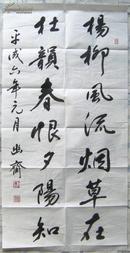 楊柳風流烟草在
杜韻春恨夕陽知
平成六年元月 幽齋